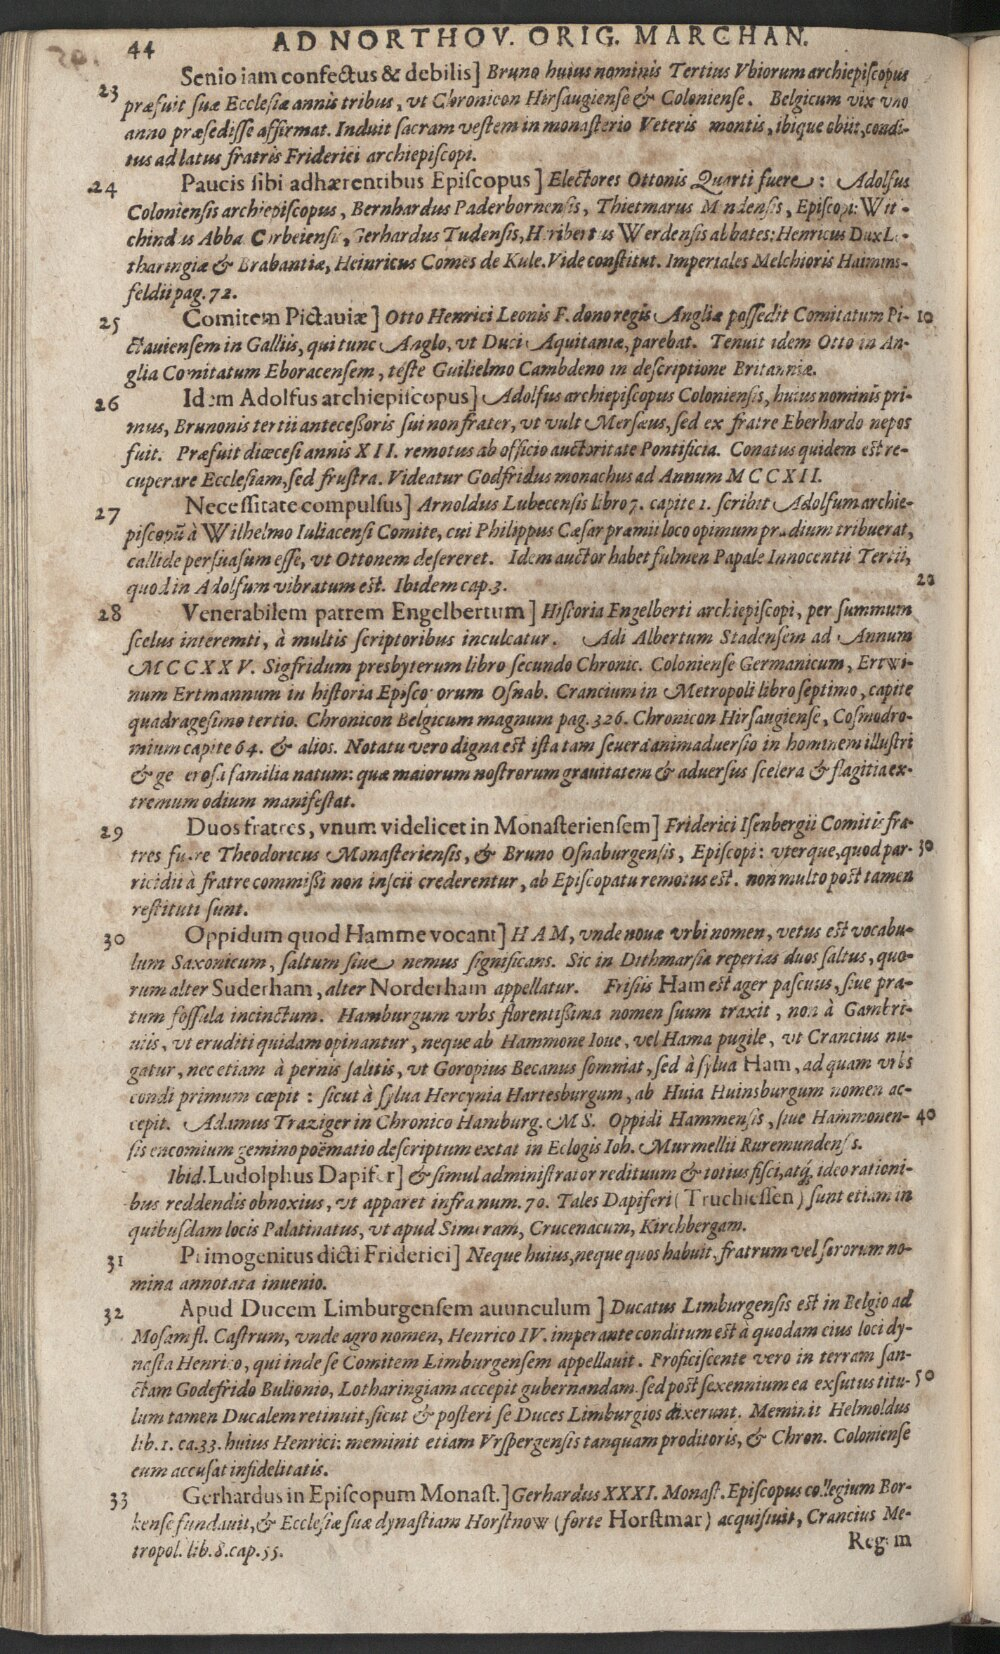 44 AD NORTHOV. ORIG. MARCHAN.
23 Senio iam confectus & debilis] Bruno huius nominis Tertius Vbiorum archiepiſcopus
præfuit ſuæ Eccleſiæ annis tribus, vt Chronicon Hirſaugienſe & Colonienſe. Belgicum vix vno
anno præſediſſe affirmat. Induit ſacram veſtem in monaſterio Veteris montis, ibique obiit, condi-
tus ad latus fratris Friderici archiepiſcopi.
24 Paucis ſibi adhærentibus Epiſcopus] Electores Ottonis Quarti fuere: Adolfus
Colonienſis archiepiſcopus, Bernhardus Paderbornenſis, Thietmarus Mindenſis, Epiſcopi: Wit-
chindus Abba Corbeienſis, Gerhardus Tudenſis, Heribertus Werdenſis abbates: Henricus Dux Lo-
tharingiæ & Brabantiæ, Heinricus Comes de Kule. Vide conſtitut. Imperiales Melchioris Haimins-
feldii pag. 72.
25 Comitem Pictauiæ] Otto Henrici Leonis F. dono regis Angliæ poſſedit Comitatum Pi- 10
ctauienſem in Galliis, qui tunc Anglo, vt Duci Aquitaniæ, parebat. Tenuit idem Otto in An-
glia Comitatum Eboracenſem, teſte Guilielmo Cambdeno in deſcriptione Britanniæ.
26 Idem Adolfus archiepiſcopus] Adolfus archiepiſcopus Colonienſis, huius nominis pri-
mus, Brunonis tertii anteceßoris ſui non frater, vt vult Merſæus, ſed ex fratre Eberhardo nepos
fuit. Præfuit diœceſi annis XII. remotus ab officio auctoritate Pontificia. Conatus quidem eſt re-
cuperare Eccleſiam, ſed fruſtra. Videatur Godfridus monachus ad Annum MCCXII.
27 Neceſſitate compulſus] Arnoldus Lubecenſis libro 7. capite 1. ſcribit Adolfum archie-
piſcopū à Wilhelmo Iuliacenſi Comite, cui Philippus Cæſar præmii loco opimum prædium tribuerat,
callide perſuaſum eſſe, vt Ottonem deſereret. Idem auctor habet fulmen Papale Innocentii Tertii,
quod in Adolfum vibratum est. Ibidem cap. 3. 20
28 Venerabilem patrem Engelbertum] Hiſtoria Engelberti archiepiſcopi, per ſummum
ſcelus interemti, à multis ſcriptoribus inculcatur. Adi Albertum Stadenſem ad Annum
MCCXXV. Sigfridum presbyterum libro ſecundo Chronic. Colonienſe Germanicum, Ertwi-
num Ertmannum in hiſtoria Epiſcoporum Oſnab. Crancium in Metropoli libro ſeptimo, capite
quadrageſimo tertio. Chronicon Belgicum magnum pag. 326. Chronicon Hirſaugienſe, Coſmodro-
mium capite 64. & alios. Notatu vero digna eſt iſta tam ſeuera animaduerſio in hominem illuſtri
& generoſa familia natum: quæ maiorum noſtrorum grauitatem & aduerſus ſcelera & flagitia ex-
tremum odium manifeſtat.
29 Duos fratres, vnum videlicet in Monaſterienſem] Friderici Iſenbergii Comitis fra-
tres fuere Theodoricus Monaſterienſis, & Bruno Oſnaburgenſis, Epiſcopi: vterque, quod par- 30
ricidii à fratre commißi non inſcii crederentur, ab Epiſcopatu remotus est. non multo post tamen
reſtituti ſunt.
30 Oppidum quod Hamme vocant] HAM, vnde nouæ vrbi nomen, vetus est vocabu-
lum Saxonicum, ſaltum ſiue nemus ſignificans. Sic in Dithmarſia reperias duos ſaltus, quo-
rum alter Suderham, alter Norderham appellatur. Friſiis Ham est ager paſcuus, ſiue pra-
tum foſſula incinctum. Hamburgum vrbs florentißima nomen ſuum traxit, non à Gambri-
uiis, vt eruditi quidam opinantur, neque ab Hammone Ioue, vel Hama pugile, vt Crancius nu-
gatur, nec etiam à pernis ſalitis, vt Goropius Becanus ſomniat, ſed à ſylua Ham, ad quam vrbs
condi primum cœpit: ſicut à ſylua Hercynia Hartesburgum, ab Huia Huinsburgum nomen ac-
cepit. Adamus Traziger in Chronico Hamburg. MS. Oppidi Hammenſis, ſiue Hammonen- 40
ſis encomium gemino poëmatio deſcriptum extat in Eclogis Ioh. Murmellii Ruremundenſis.
Ibid. Ludolphus Dapifer] & ſimul adminiſtrator redituum & totius fiſci, atq́, ideo rationi-
bus reddendis obnoxius, vt apparet infra num. 70. Tales Dapiferi (Truchieſſen) ſunt etiam in
quibuſdam locis Palatinatus, vt apud Simeram, Crucenacum, Kirchbergam.
31 Primogenitus dicti Friderici] Neque huius, neque quos habuit, fratrum vel ſororum no-
mina annotata inuenio.
32 Apud Ducem Limburgenſem auunculum] Ducatus Limburgenſis est in Belgio ad
Moſam fl. Caſtrum, vnde agro nomen, Henrico IV. imperante conditum est à quodam eius loci dy-
naſta Henrico, qui inde ſe Comitem Limburgenſem appellauit. Proficiſcente vero in terram ſan-
ctam Godefrido Bulionio, Lotharingiam accepit gubernandam. ſed post ſexennium ea exſutus titu- 50
lum tamen Ducalem retinuit, ſicut & poſteri ſe Duces Limburgios dixerunt. Meminit Helmoldus
lib. 1. ca. 33. huius Henrici: meminit etiam Vrſpergenſis tanquam proditoris, & Chron. Colonienſe
eum accuſat infidelitatis.
33 Gerhardus in Epiſcopum Monaſt.] Gerhardus XXXI. Monaſt. Epiſcopus collegium Bor-
kenſe fundauit, & Eccleſiæ ſuæ dynaſtiam Horſtnow (forte Horſtmar) acquiſiuit, Crancius Me-
tropol. lib. 8. cap. 55.
Regem